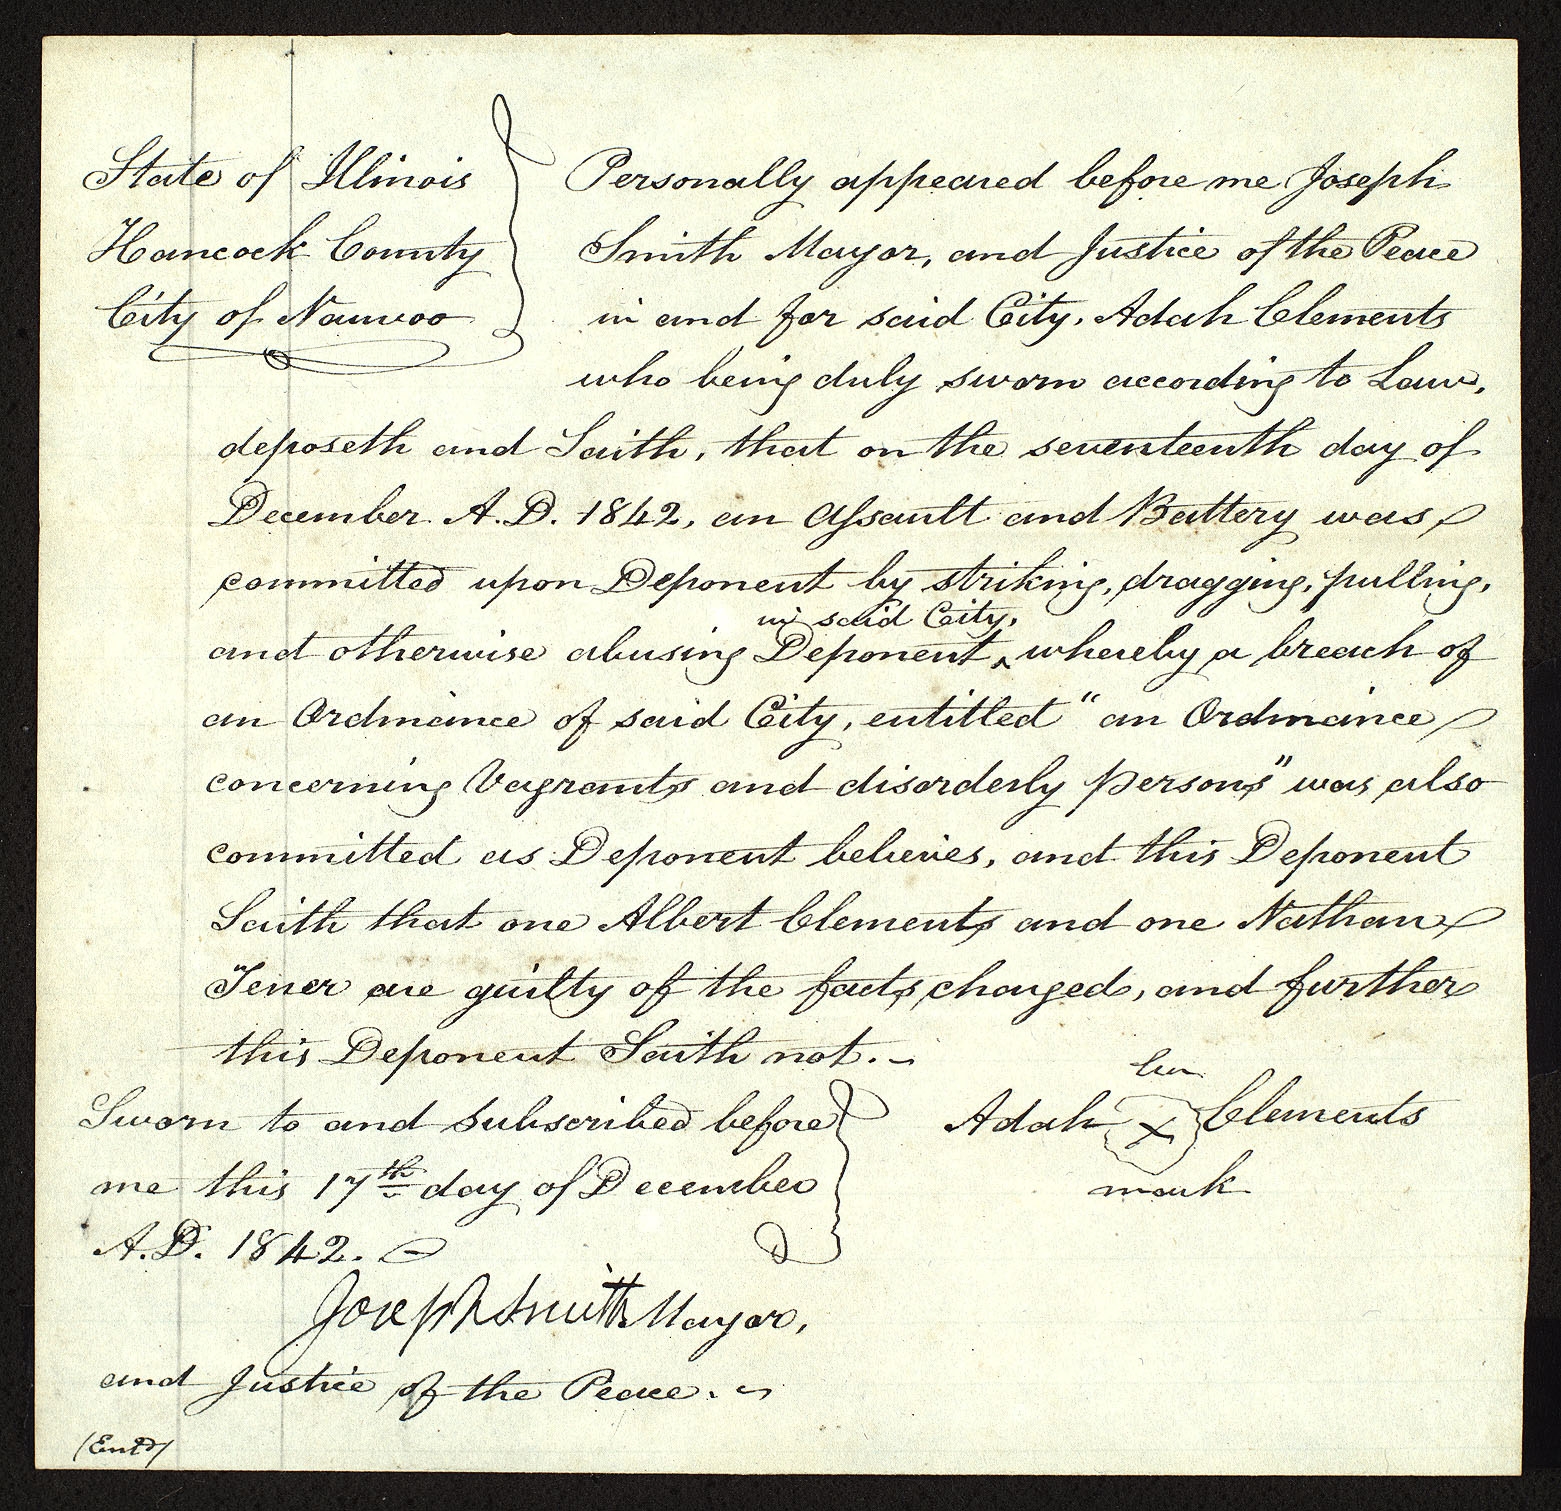 State of Illinois
Hancock County
City of Nauvoo
Personally appeared before me Joseph
Smith Mayor, and Justice of the Peace
in and for said City, Adah Clements
who being duly sworn according to Law,
deposeth and Saith, that on the seventeenth day of
December A.D. 1842, an Assault and Battery was
committed upon Deponent by striking, dragging, pulling,
in said City,
and otherwise abusing Deponent ‸ whereby a breach of
an Ordinance of said City, entitled "an Ordinance
concerning Vagrants and disorderly persons" was also
committed as Deponent believes, and this Deponent
Saith that one Albert Clements and one Nathan
Tener are guilty of the facts charged, and further
this Deponent Saith not.
her
Adah X Clements
mark
Sworn to and subscribed before
me this 17th day of December
A.D. 1842.
Joseph Smith Mayor,
and Justice of the Peace.
(Entd)